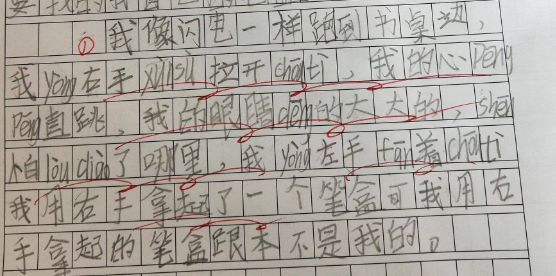 要找的我首
①我像闪电一样跑到书桌边，
我yòng右手xùnsù拉开chōutì，我的心pēng
pēng直跳，我的眼睛dèng的大大的，shēng
怕lòu diào了哪里，我yòng左手fān着chōutì
我用右手拿起了一个笔盒可我用右
手拿起的笔盒跟本不是我的。